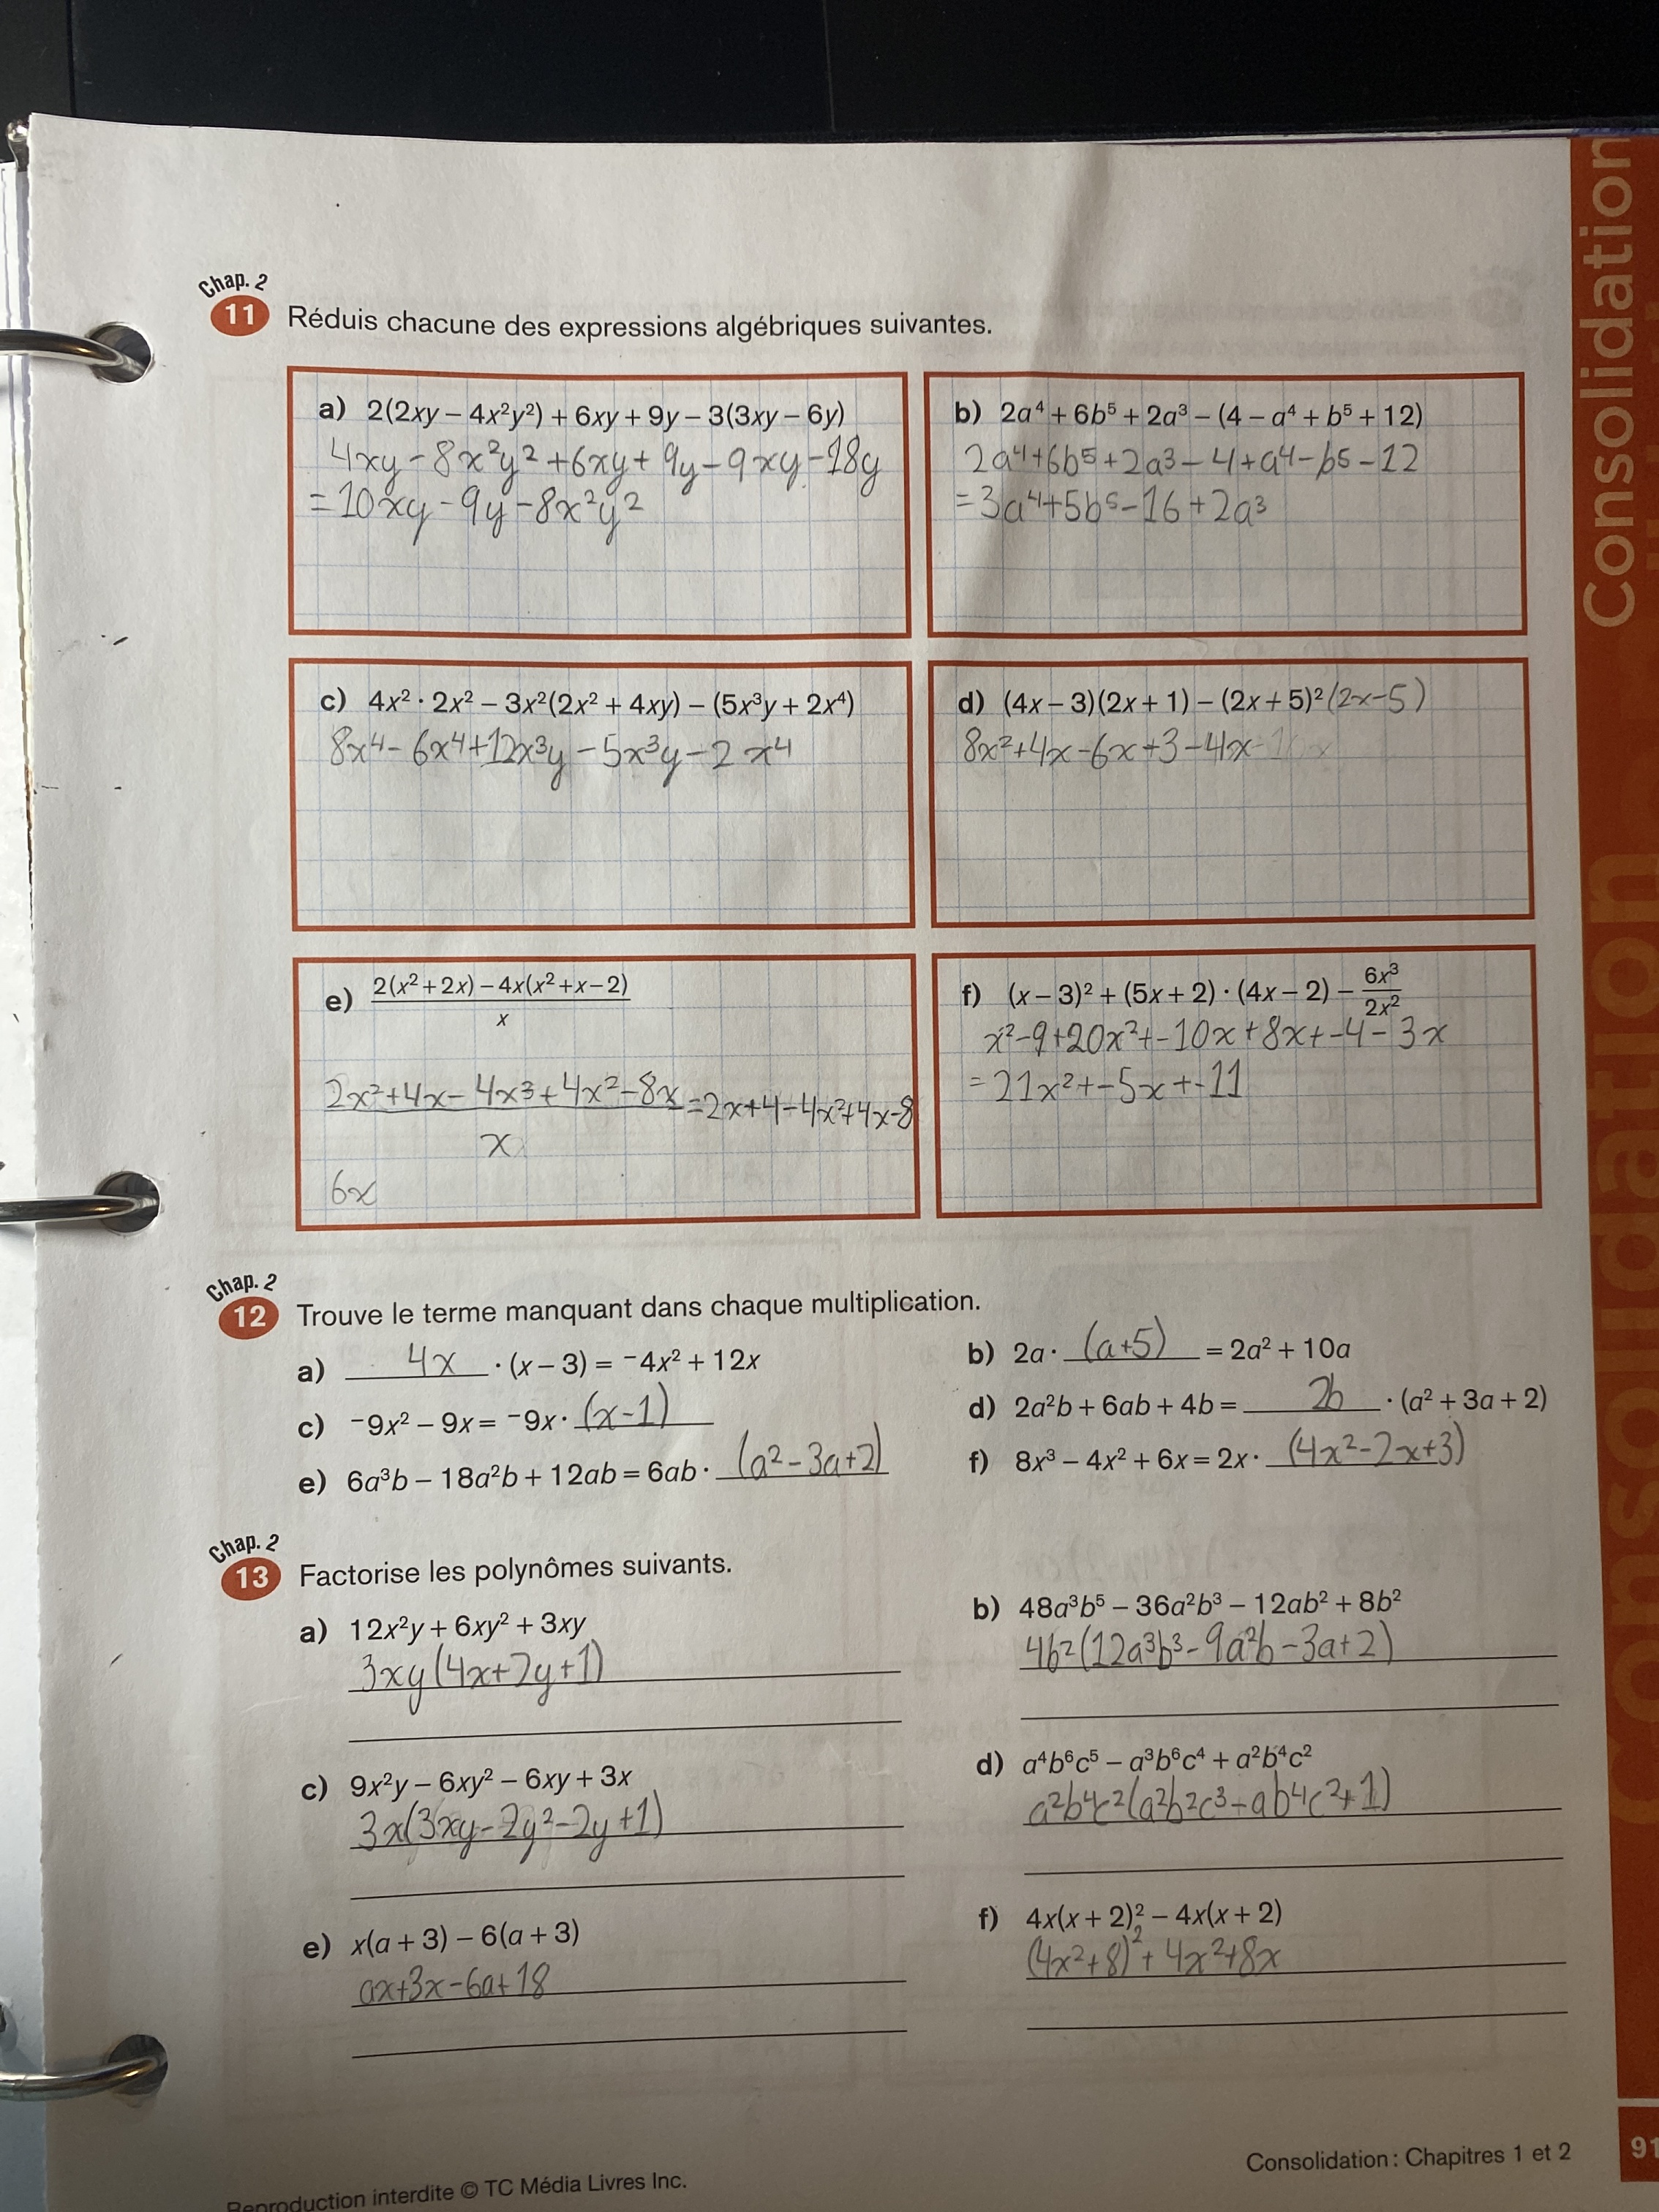 Consolidation
Chap. 2
11 Réduis chacune des expressions algébriques suivantes.
a) 2(2xy – 4x²y²) + 6xy + 9y – 3(3xy – 6y)
4xy - 8x²y² + 6xy + 9y - 9xy - 18y
= 10xy - 9y - 8x²y²
b) 2a⁴ + 6b⁵ + 2a³ – (4 – a⁴ + b⁵ + 12)
2a⁴+6b⁵+2a³-4+a⁴-b⁵-12
=3a⁴+5b⁵-16+2a³
c) 4x² · 2x² – 3x²(2x² + 4xy) – (5x³y + 2x⁴)
8x⁴- 6x⁴+12x³y -5x³y-2x⁴
d) (4x – 3)(2x + 1) – (2x + 5)² (2x-5)
8x²+4x-6x+3-4x
e) 2(x² + 2x) – 4x(x² + x – 2)
x
2x²+4x- 4x³+4x²-8x =2x+4-4x²+4x-8
x
6x
f) (x – 3)² + (5x + 2) · (4x – 2) – 6x³
2x²
x²-9+20x²+-10x+8x+-4-3x
= 21x²+-5x+-11
Chap. 2
12 Trouve le terme manquant dans chaque multiplication.
a) 4x · (x – 3) = ⁻4x² + 12x
b) 2a · (a+5) = 2a² + 10a
c) ⁻9x² – 9x = ⁻9x · (x-1)
d) 2a²b + 6ab + 4b = 2b · (a² + 3a + 2)
e) 6a³b – 18a²b + 12ab = 6ab · (a²-3a+2)
f) 8x³ – 4x² + 6x = 2x · (4x²-2x+3)
Chap. 2
13 Factorise les polynômes suivants.
a) 12x²y + 6xy² + 3xy
3xy(4x+2y+1)
b) 48a³b⁵ – 36a²b³ – 12ab² + 8b²
4b²(12a³b³-9a²b-3a+2)
c) 9x²y – 6xy² – 6xy + 3x
3x(3xy-2y²-2y+1)
d) a⁴b⁶c⁵ – a³b⁶c⁴ + a²b⁴c²
a²b⁴c²(a²b²c³-ab⁴c²+1)
e) x(a + 3) – 6(a + 3)
ax+3x-6a+18
f) 4x(x + 2)² – 4x(x + 2)
(4x²+8)²+ 4x²+8x
Consolidation : Chapitres 1 et 2
91
Reproduction interdite © TC Média Livres Inc.